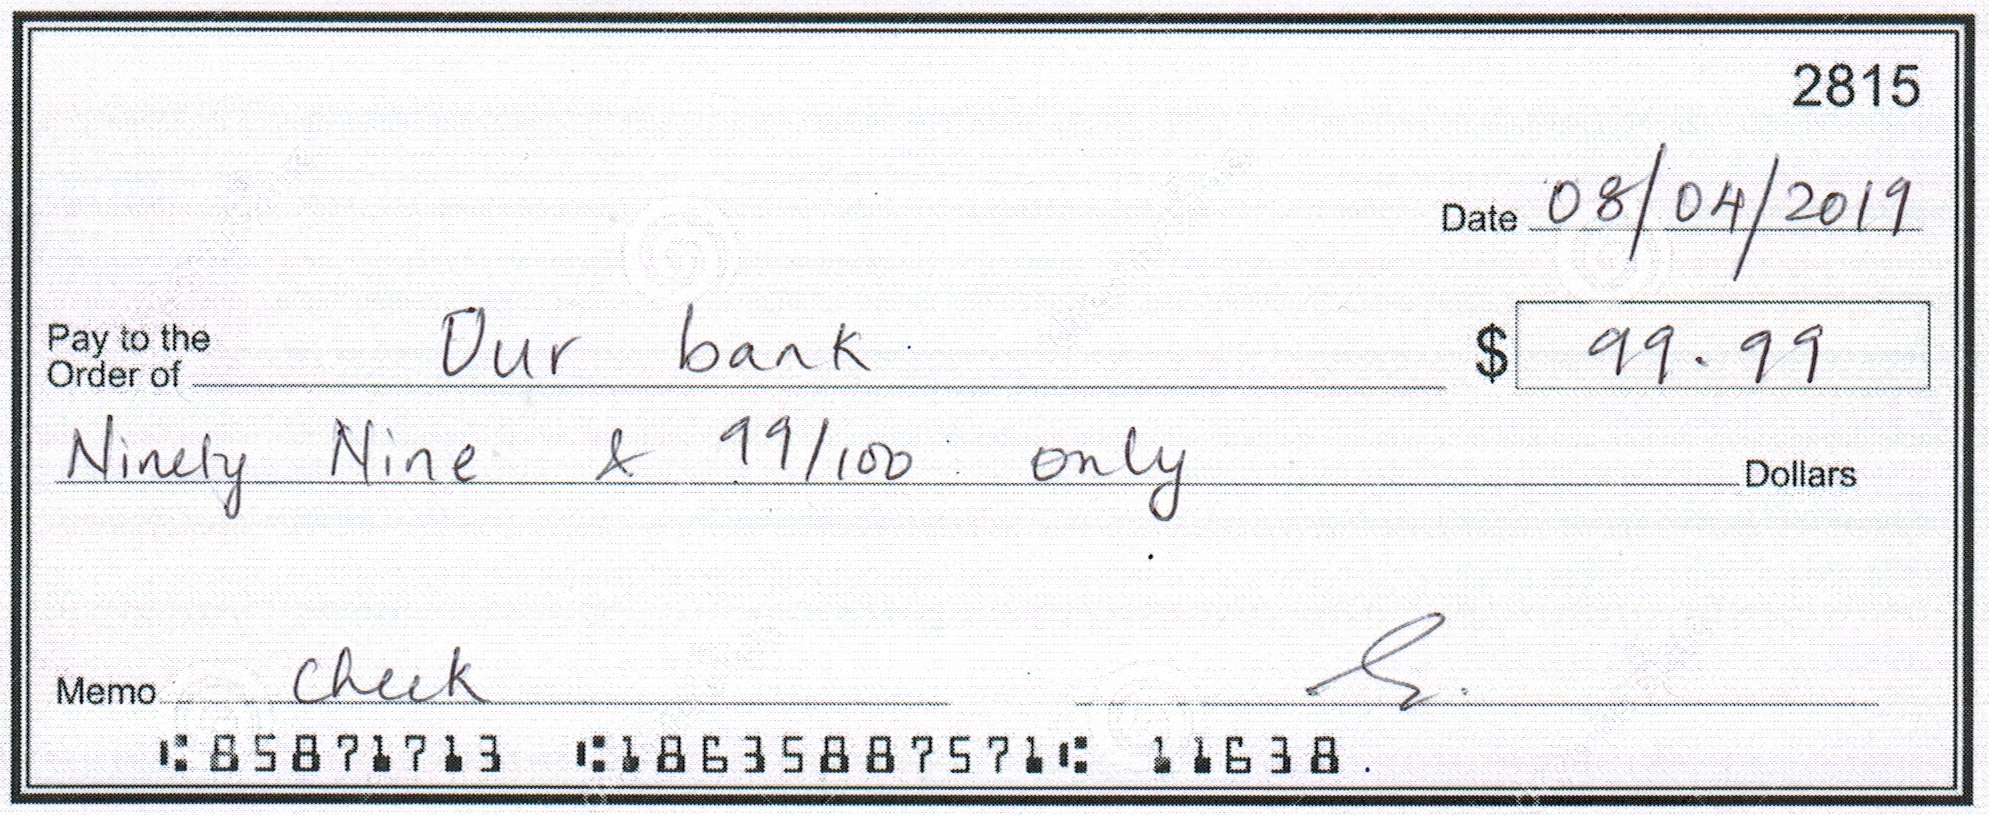 2815
Date 08/04/2019
Pay to the
Order of Our bank $ 99.99
Ninety Nine & 99/100 only Dollars
Memo check
⑆85871713 ⑆18635887571⑆ 11638